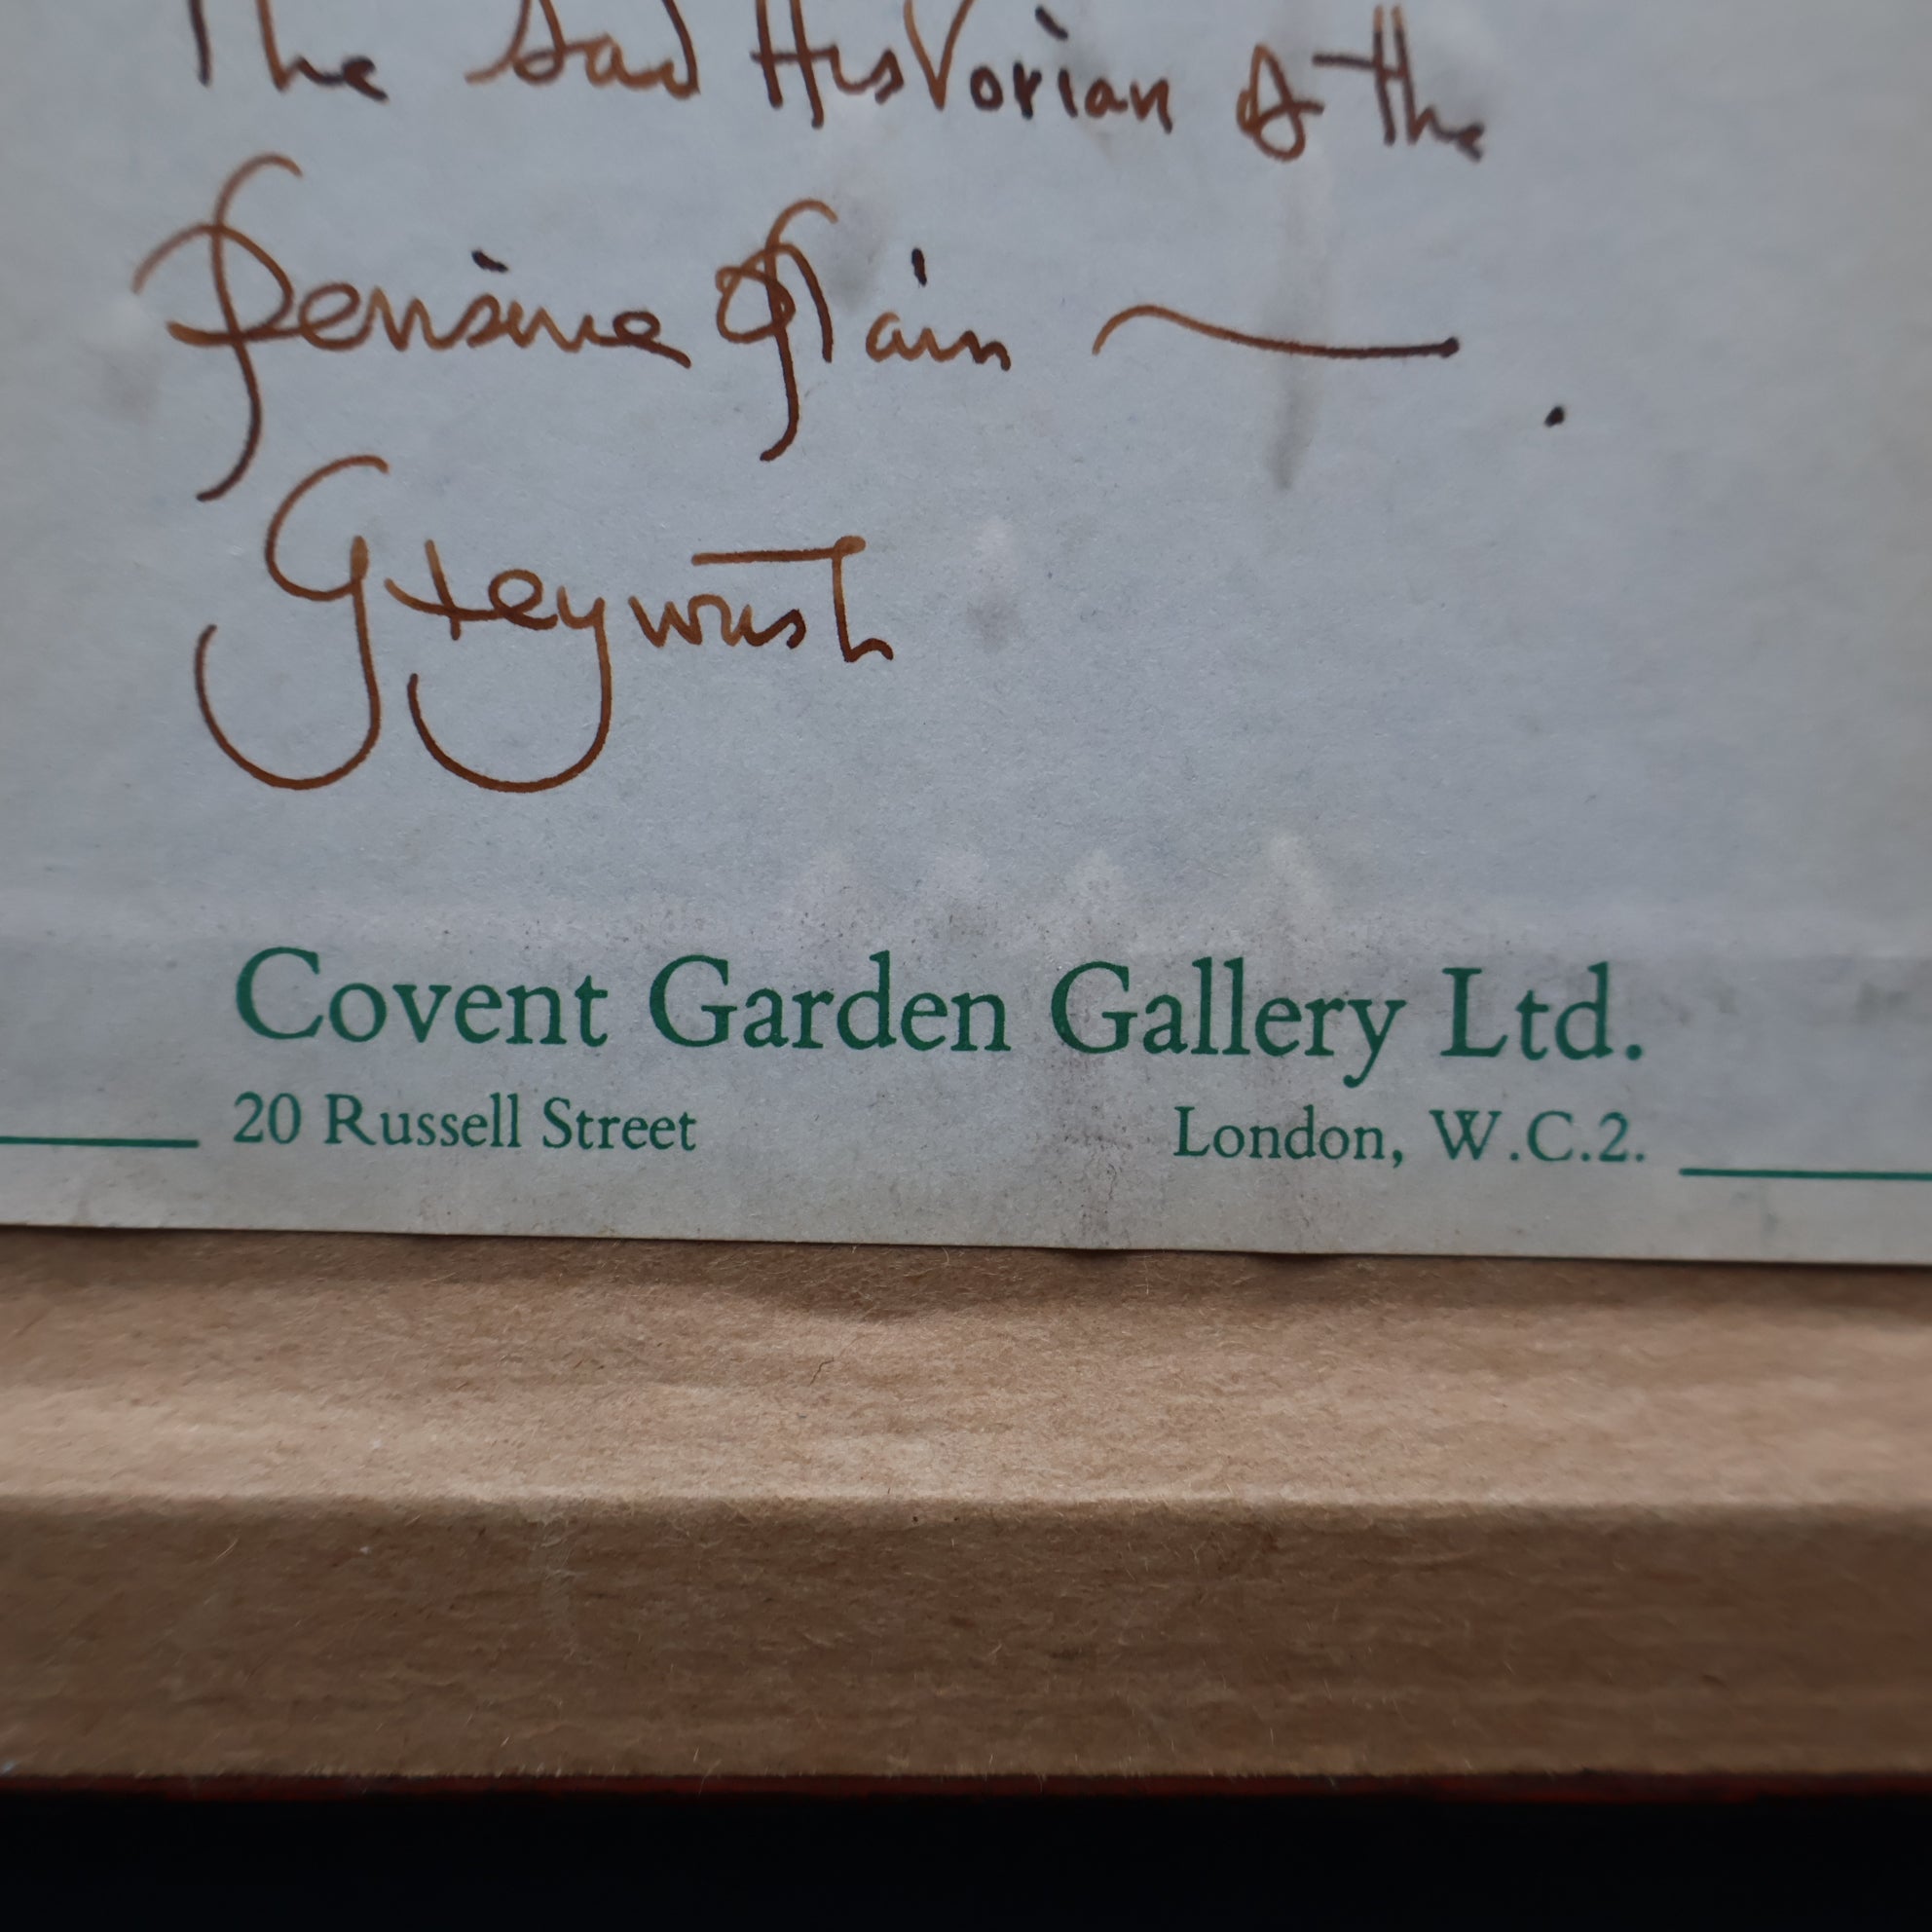 The Sad Historian of the
pensive plain —.
Grey wash
Covent Garden Gallery Ltd.
20 Russell Street London, W.C.2.